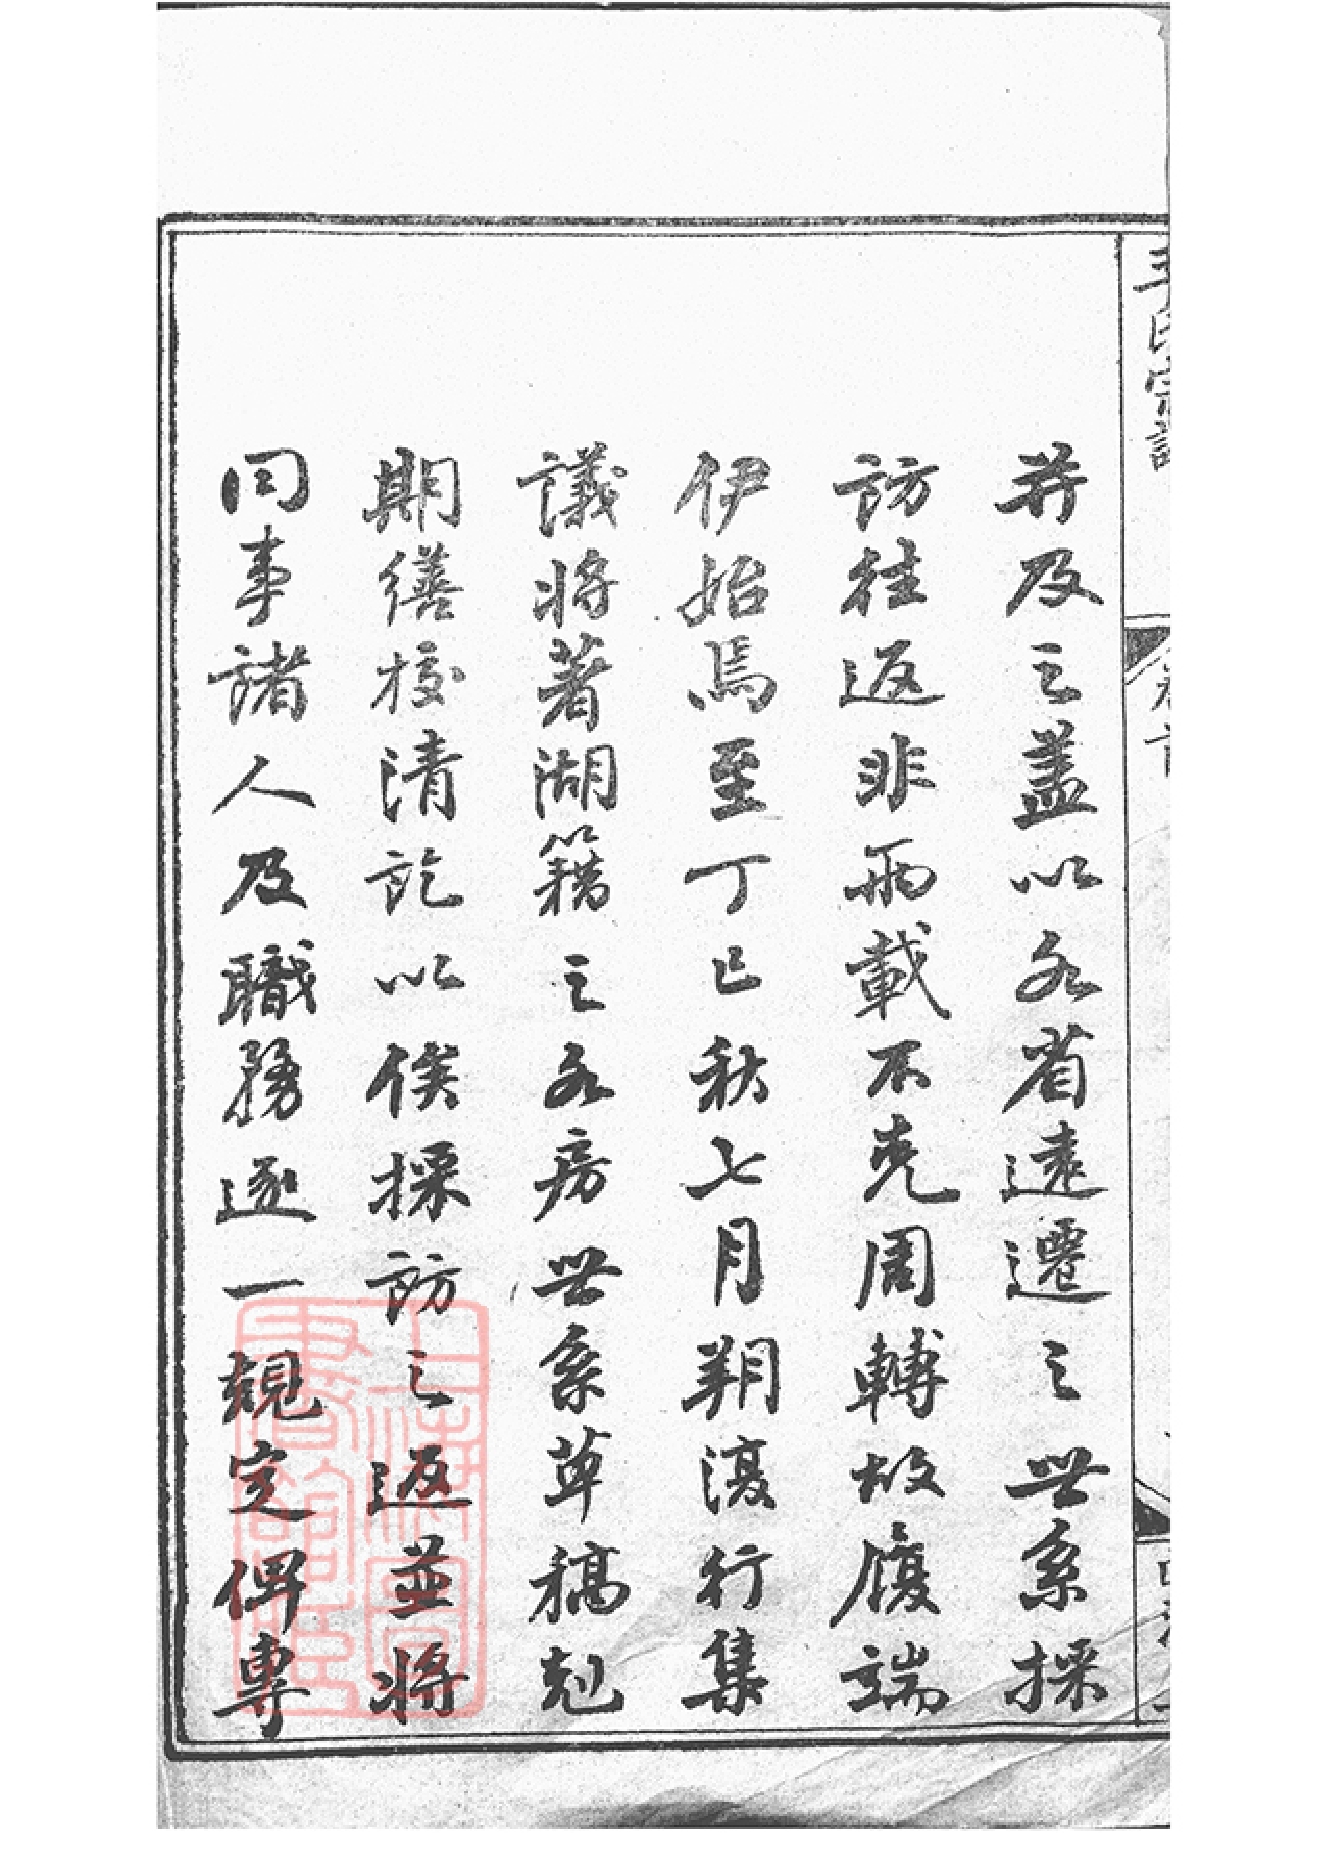 氏宗譜
卷首
并及之蓋以各省遠遷之世系採
訪往返非兩載不克周轉故履端
伊始焉至丁巳秋七月朔復行集
議將著湖籍之各房世系草稿剋
期繕校清訖以俟採訪之返並將
同事諸人及職務逐一規定俾專
上海圖書館藏